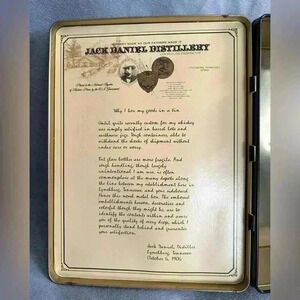 JACK DANIEL DISTILLERY
Why I box my goods in a tin
Until quite recently custom for my whiskey
was simply satisfied in barrel lots and
earthware jugs. Such containers, able to
withstand the shocks of shipment without
undue care or worry.
But glass bottles are more fragile. And
rough handling, though largely
unintentional I am sure, is often
commonplace at the many depots along
the line between my establishment here in
Lynchburg, Tennessee, and your sideboard.
Hence this novel metal box. The embossed
embellishments hereon, decorative and
colorful though they might be, are to
identify the contents within and assure
you of the quality of every drop, which I
personally stand behind and guarantee
your satisfaction.
Jack Daniel, Distiller
Lynchburg, Tennessee
October 6, 1905